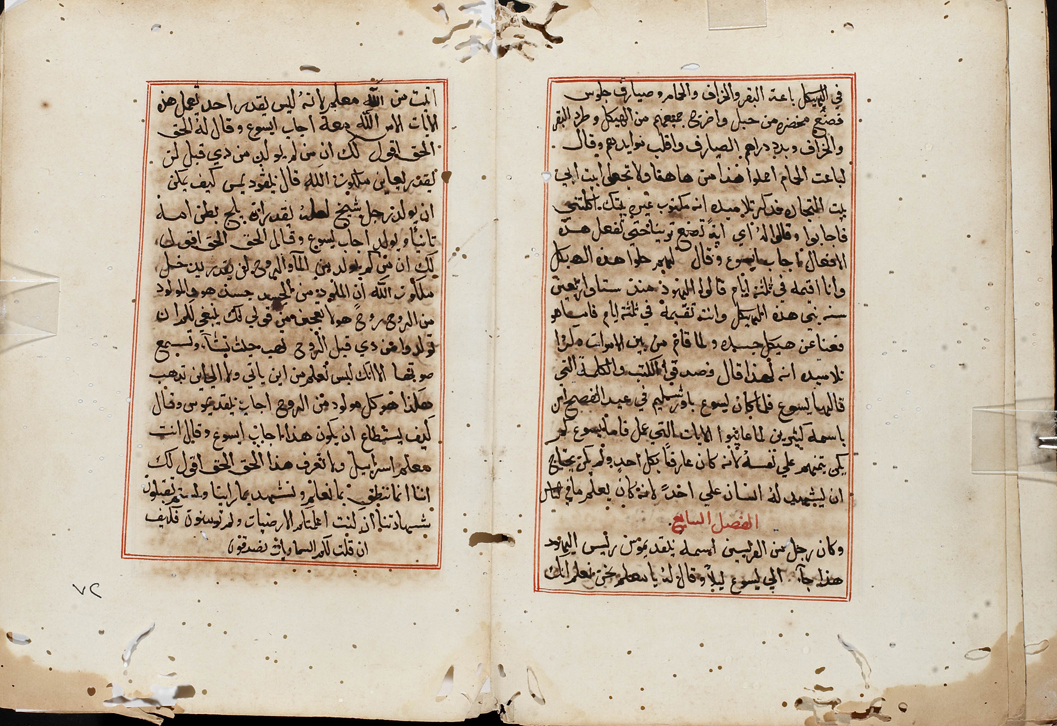 في الهيكل باعة البقر والخراف والحمام وصيارف جلوس
فصنع مخصره من حبل واخرج جميعهم من الهيكل وطرد البقر
والخراف وبدد دراهم الصيارف واقلب موايدهم وقال
لباعت الحمام احملوا هذا من هاهنا ولا تجعلوا بيت ابي
بيت المتجاره فذكر تلاميذه انه مكتوب غيرة بيتك اكلتني
فاجابوا وقالوا له اي اية تصنع ترينا حتى تفعل هذه
الافعال اجاب ايسوع وقال لهم حلوا هذه الهيكل
وانا اقيمه في ثلثة ايام قالوا اليهود منذ ستا واربعين
سنه بني هذه الهيكل وانت تقيمه في ثلثة ايام فاما هو
فعنا عن هيكل جسده ولما قام من بين الاموات ذكروا
تلاميذه انه لهذا قال وصدقوا الكتب والكلمة التي
قالها يسوع فلما كان يسوع باورشليم في عيد الفصح امن
باسمه كثيرين لما عاينوا الايات التي عمل فاما يسوع لم
يكن يتمنهم علي نفسه لانه كان عارفا بكل احد ولم يكن يحتاج
ان يشهد له انسان علي احد لانه كان يعلم ما في
الفصل السابع
وكان رجل من الفريسين اسمه نيقديموس رئيس اليهود
هذا جآ الي يسوع ليلا وقال له يا معلم نحن نعلم انك
اتيت من الله معلم لانه ليس يقدر احد تعمل هذ
الايات الا من الله معه اجاب ايسوع وقال له الحق
الحق اقول لك ان من لم يولد من ذي قبل لن
يقدر يعاين ملكوت الله قال نيقوديمس كيف يمكن
ان يولد رجل شيخ لعله يقدر انه يلج بطن امه
ثانيا ويولد اجاب يسوع وقال الحق الحق اقول
لك ان من لم يولد من المآ والروح لن يقدر يدخل
ملكوت الله ان المولود من الجسد جسد هو والمولود
من الروح روح هو لا تعجبن من قولي لك ينبغي لكم ان
تولدوا من ذي قبل الروح تهب حيث تشآ وتسمع
صوتها الا انك ليس تعلم من اين ياتي ولا الي اين تذهب
هكذا هو كل مولود من الروح اجاب نيقديموس وقال
كيف يستطاع ان يكون هذا اجاب ايسوع وقال انت
معلم اسرائيل وما تعرف هذا الحق الحق اقول لك
اننا انما ننطق بما نعلم ونشهد بما راينا ولستم تقبلون
شهادتنا ان كنت اعلمتكم الارضيات ولم تومنون فكيف
ان قلت لكم السماويات تصدقون
٧٢